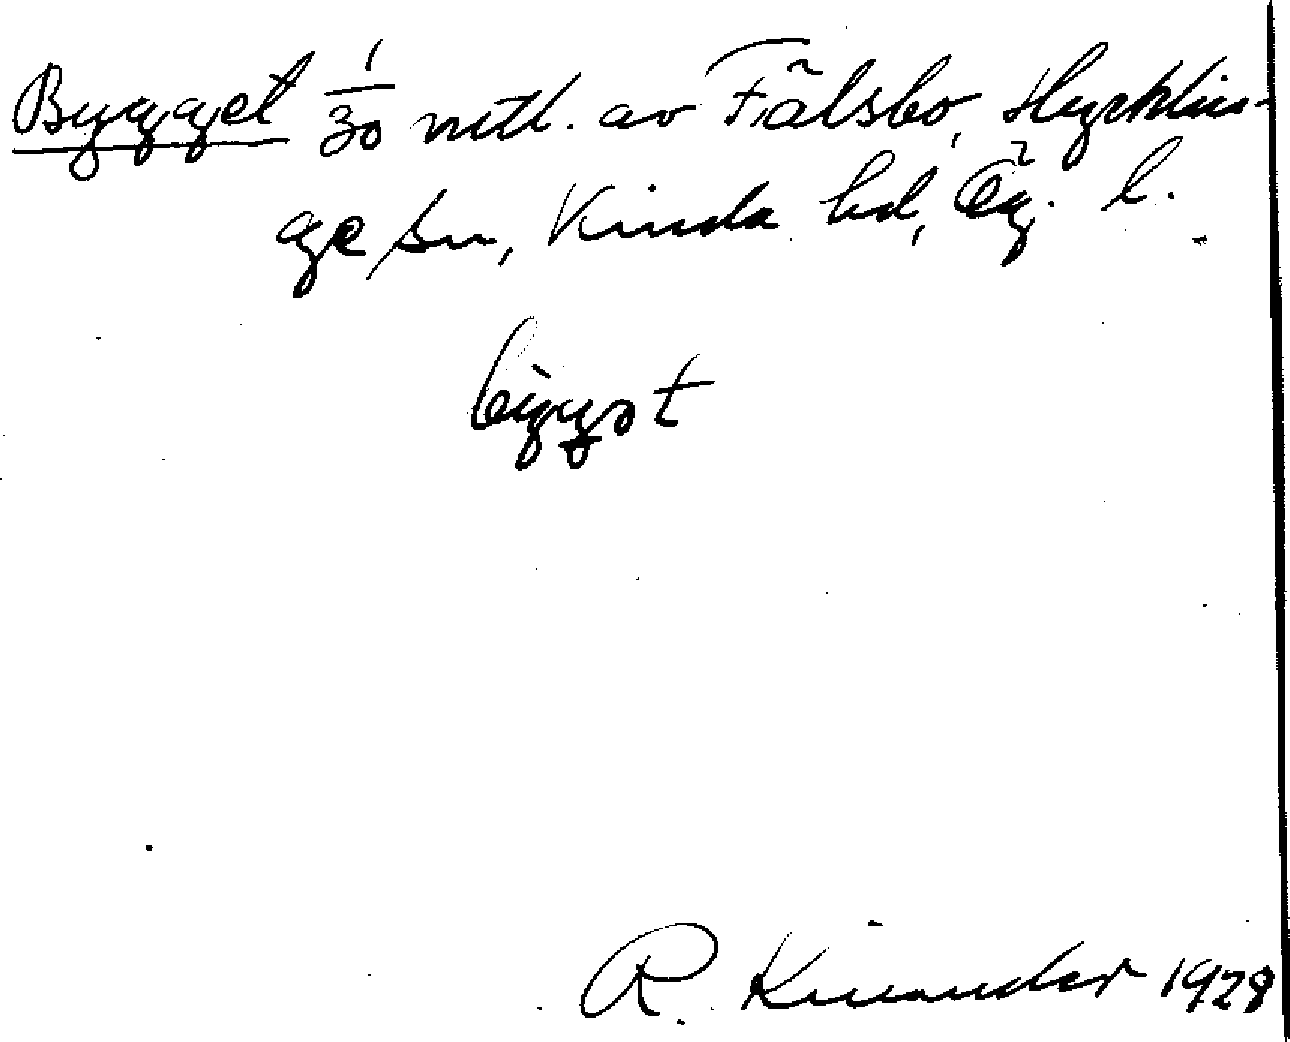 Bygget 1/30 mtl. av Fålsbo, Hycklin-
ge sn, Kinda hd, Ög. l.
R. Kinander 1928